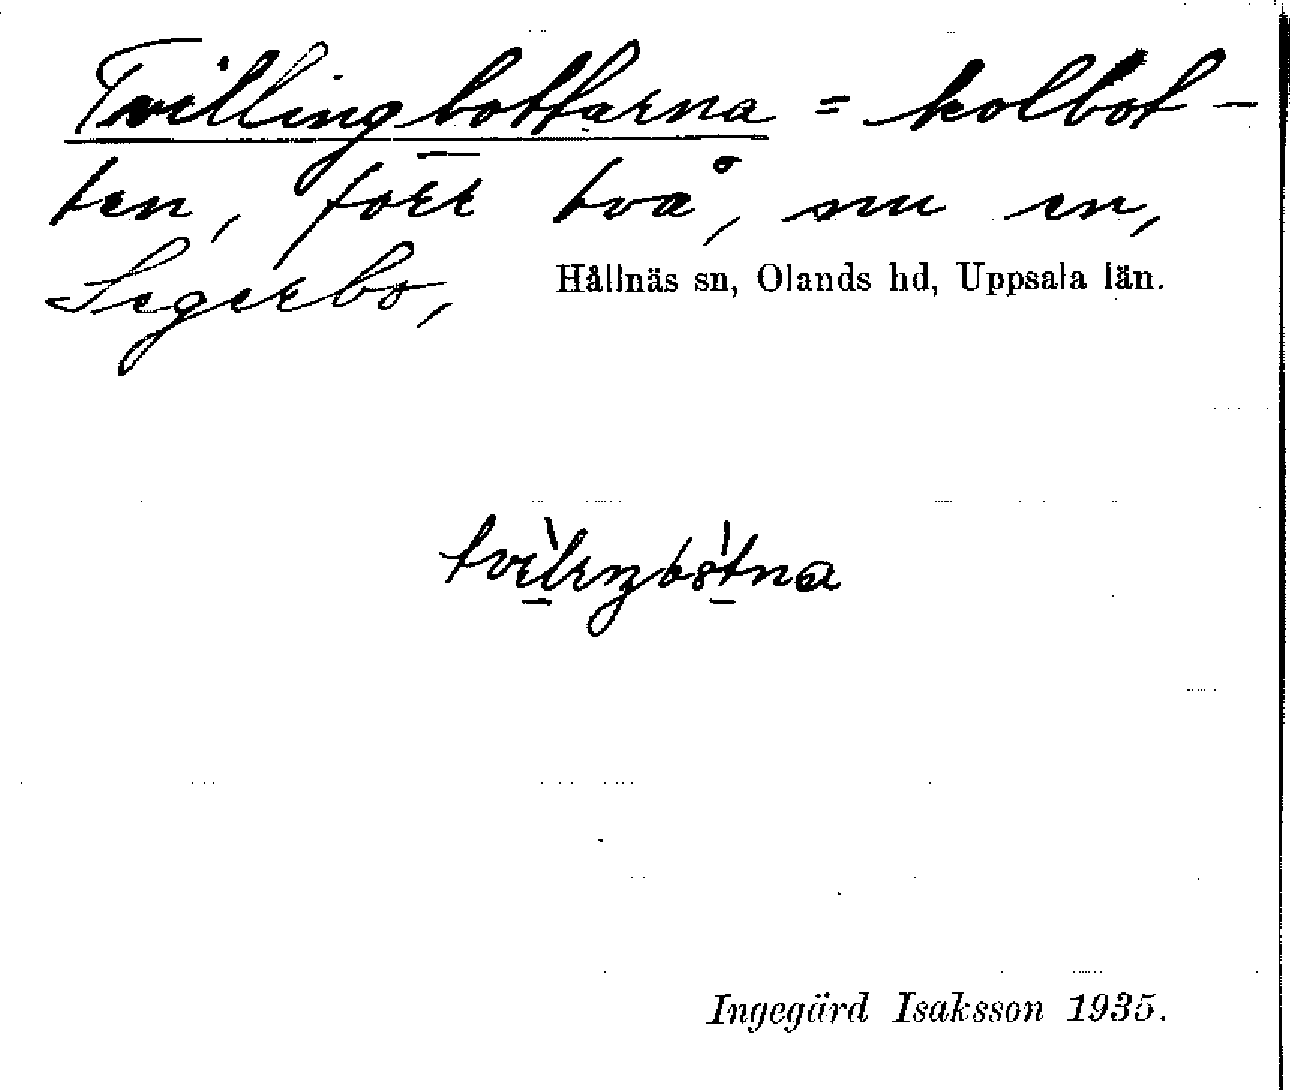 Tvillingbottarna = kolbot-
ten, förr två, nu en,
Segerbo, Hållnäs sn, Olands hd, Uppsala län.
Ingegärd Isaksson 1935.